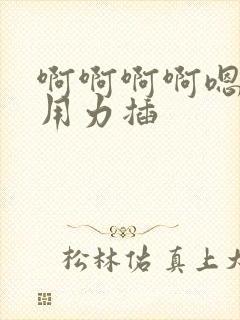 啊啊啊啊嗯
用力插
松林佑真上大